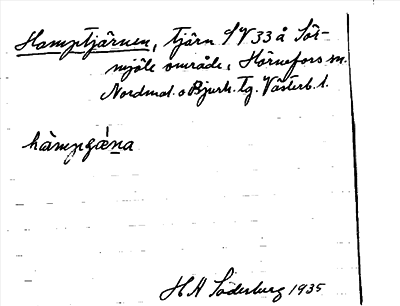 Hamptjärnen, tjärn S V 33 å Sör-
mjöle område, Hörnefors sn.
Nordmal. o Bjurh. tg. Västerb. l.
hàmpǥǽna
H A Söderburg 1935